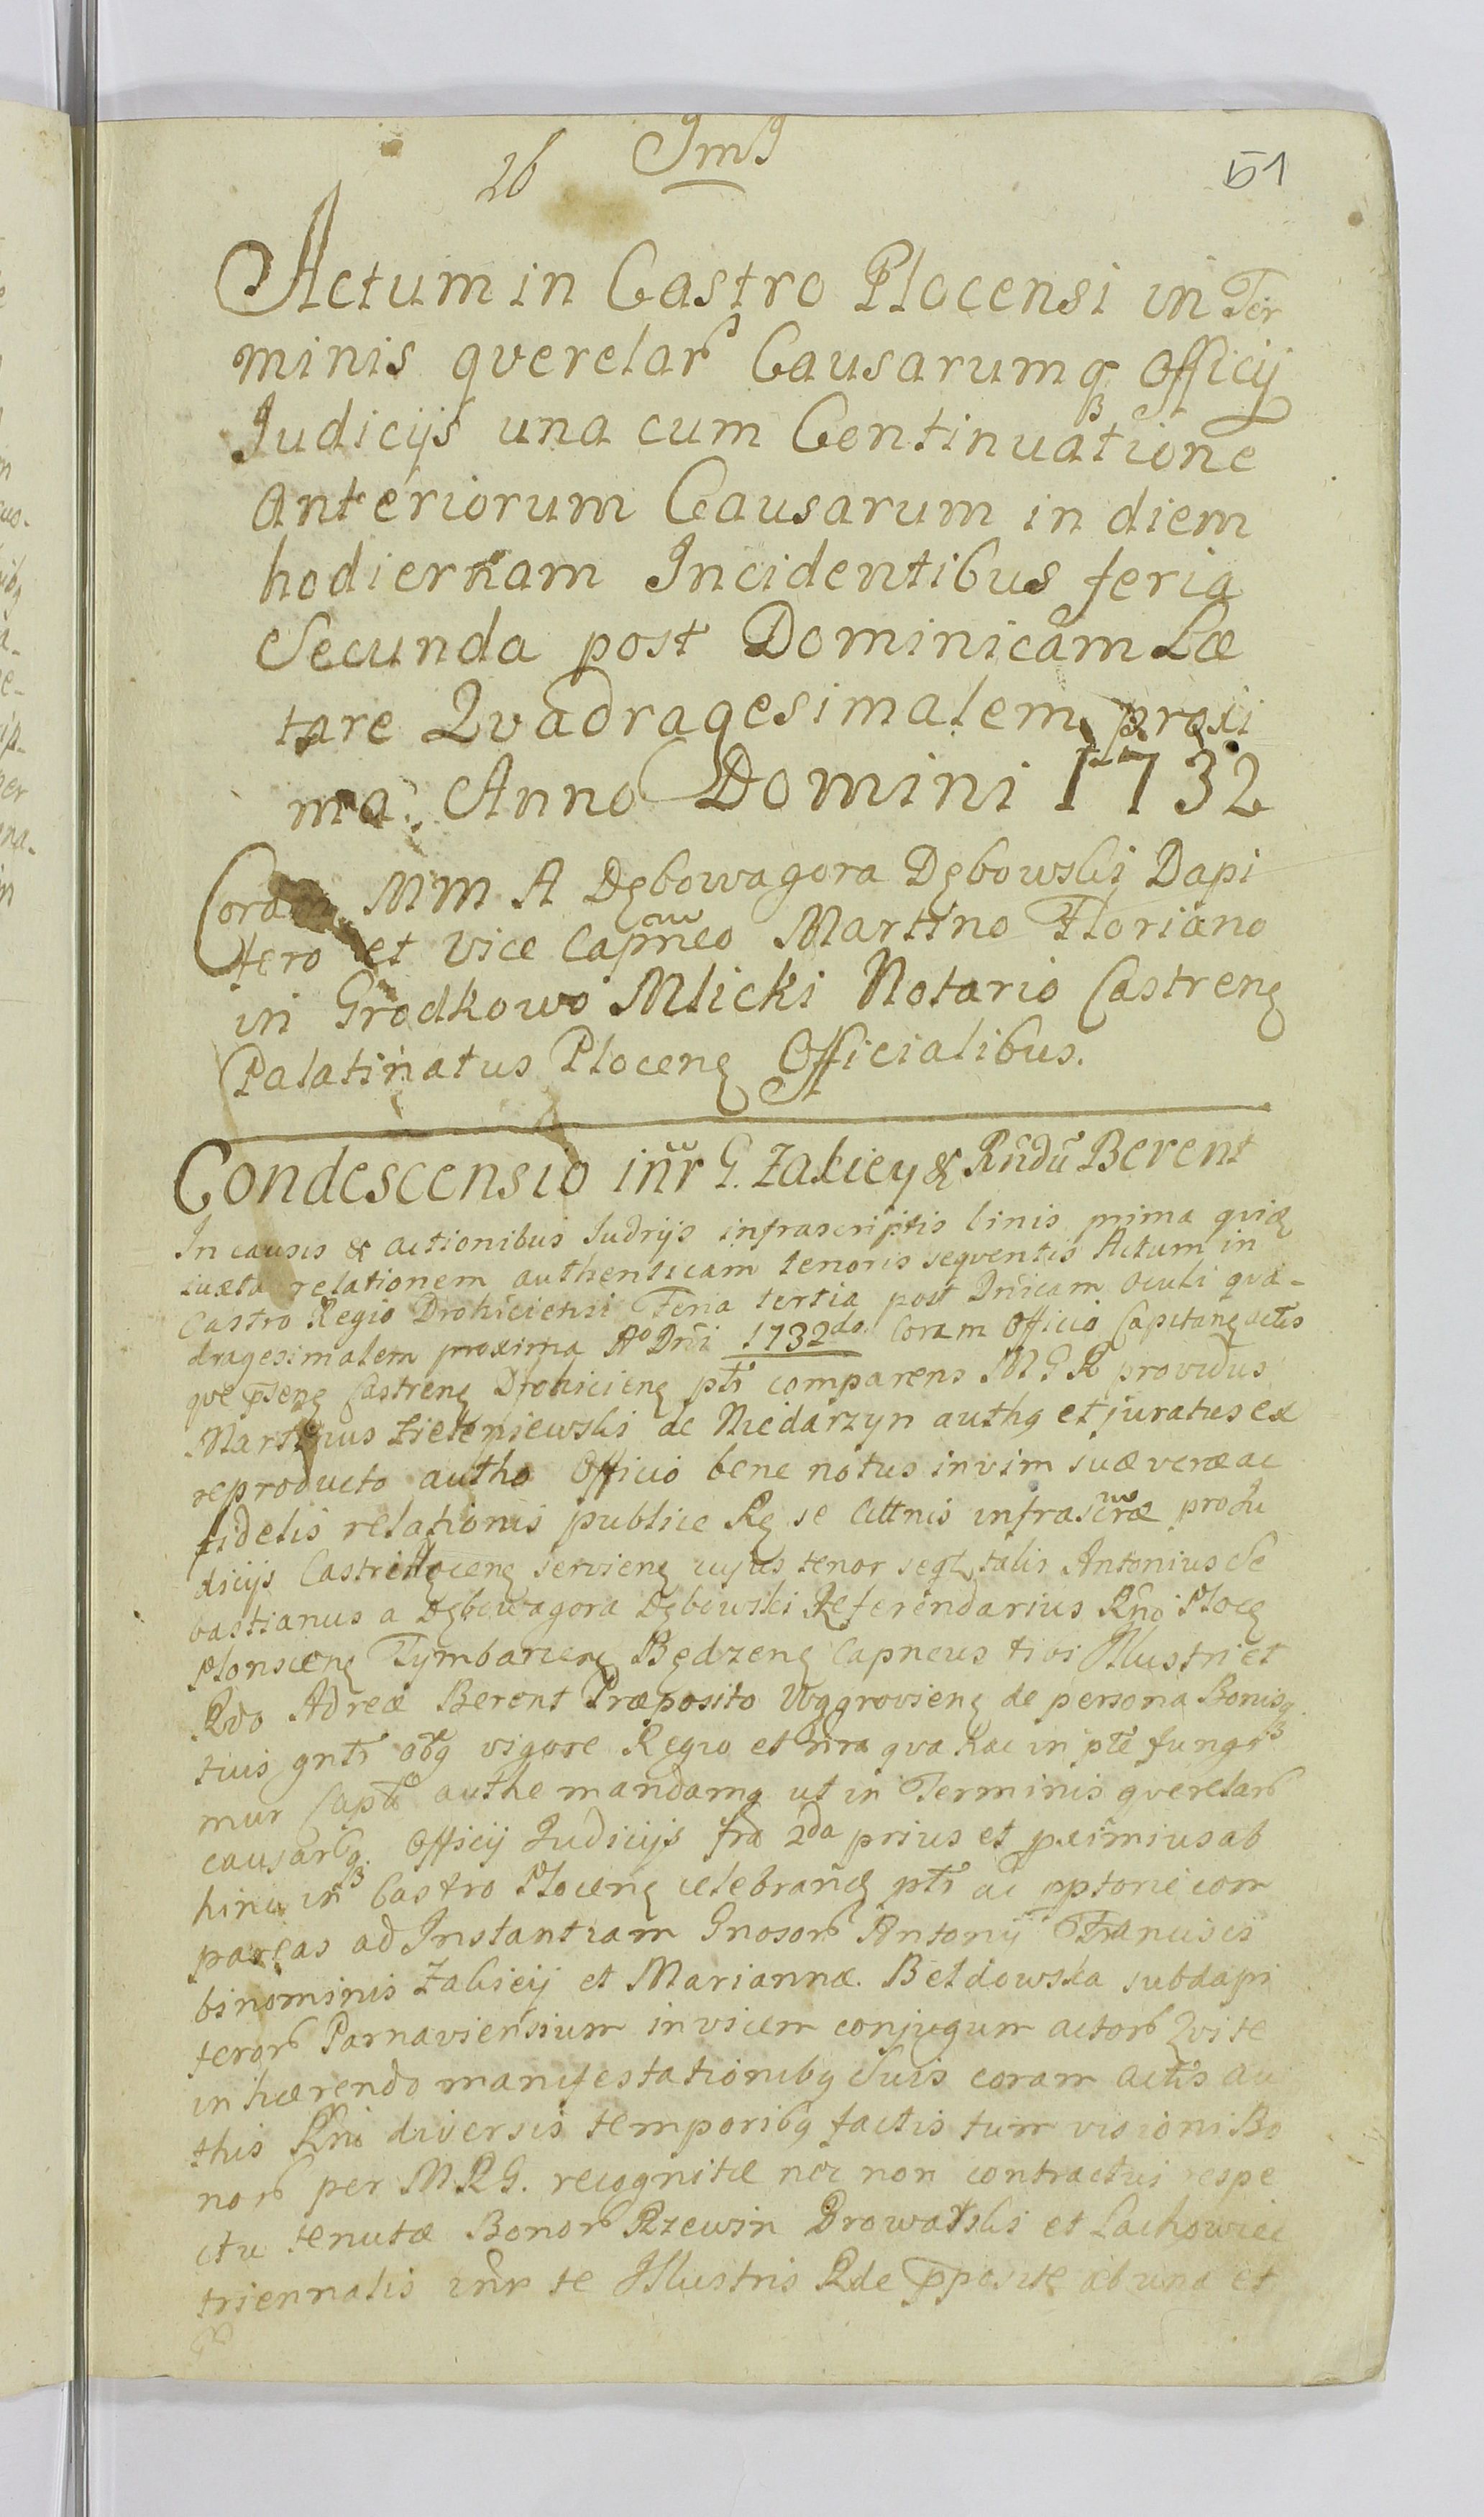 26 Jmq
51
Actum in Castro Plocensi in Ter
minis querelarb Causarumq Officij
Judicijs una cum Continuatione
anteriorum Causarum in diem
hodiernam Incidentibus feria
Secunda post Dominicam Læ
tare Qvadragesimalem proxi
ma. Anno Domini 1732
Coram MM A Dębowagora Dębowski Dapi
fero et Vice Capneo Martino Floriano
in Grodkowo Mlicki Notario Castren
Palatinatus Plocen Officialibus.
Condescensio inr G. Zaliciey & Rndu Berent
In causis & actionibus Judrijs infrascriptis binis prima qviæ
iuxta relationem authenticam tenoris seqventis Actum in
Castro Regio Drohiciensi Feria tertia post Dnicam Oculi qva-
dragesimalem proxima Ao Dni 1732do Coram Officio Capitanę actis
que pten Castren Drohicien ptr comparens MGR providus
Martinus de Niedarzyn authq et juratus ex
reproducto autho Officio bene notus invim suæ veræ ac
fidelis relationis publice Rę se littnis infrascræ pro Ju
dicijs Castri Plocen servien cujus tenor seqt talis Antonius Se
bastianus a Dębowagora Dębowski Referendarius Rni Ploc
Plonscen Tymbarcen Będzen Capneus tibi Illustri et
Rdo Adreæ Berent Præposito Węgrovien de persona Bonisq
tuis gntr obq vigore Regio et nra qva hac in pte fungi
mur Capli authe mandamq ut in Terminis qverelarb
causarbq Officij Judicijs fra 2da prius et pximius ab
hinc in Castro Plocen celebran ptr ac pptorie com
pareas ad Instantiam Gnosorb Antonij Francisci
binominis Zaliciij et Mariannæ Bełdowska subdapi
ferorb Parnaviensium invicem conjugum actorb Qvi te
inhærendo manifestationibq Suis coram actis au
this Rni diversis temporibq factis tum visioni Bo
norb per MRG. recognitæ nec non contractui respe
ctu tenutæ Bonorb Rzewin Drowarski et Lachowiec
triennalis inr te Illustris Rde pposite ab una et